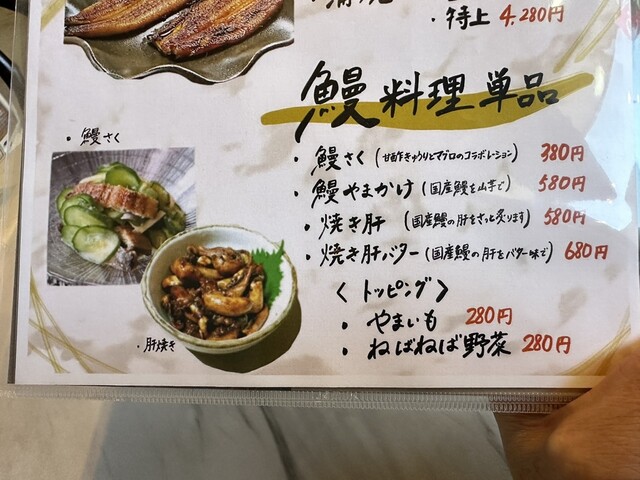 ・特上 4,280円
鰻料理単品
・鰻さく
・鰻さく (甘酢きゅうりとマグロのコラボレーション) 380円
・鰻やまかけ (国産鰻を山芋で) 580円
・焼き肝 (国産鰻の肝をさっと炙ります) 580円
・焼き肝バター (国産鰻の肝をバター味で) 680円
〈トッピング〉
・やまいも 280円
・ねばねば野菜 280円
・肝焼き